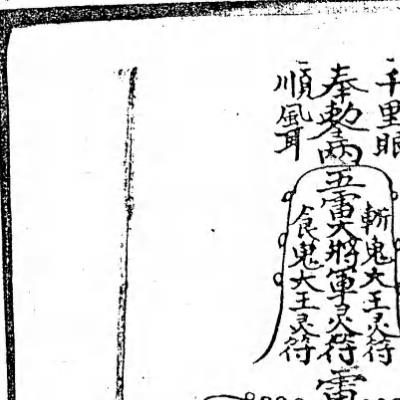 千里眼
奉敕
五雷大將軍灵符
順風耳
斬鬼大王灵符
食鬼大王灵符
雷